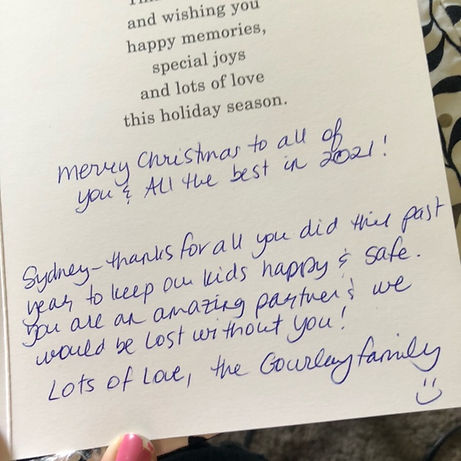 and wishing you
happy memories,
special joys
and lots of love
this holiday season.
Merry Christmas to all of
you & All the best in 2021!
Sydney- thanks for all you did this past
year to keep our kids happy & safe.
You are an amazing partner & we
would be lost without you!
Lots of Love, the Gourlay family